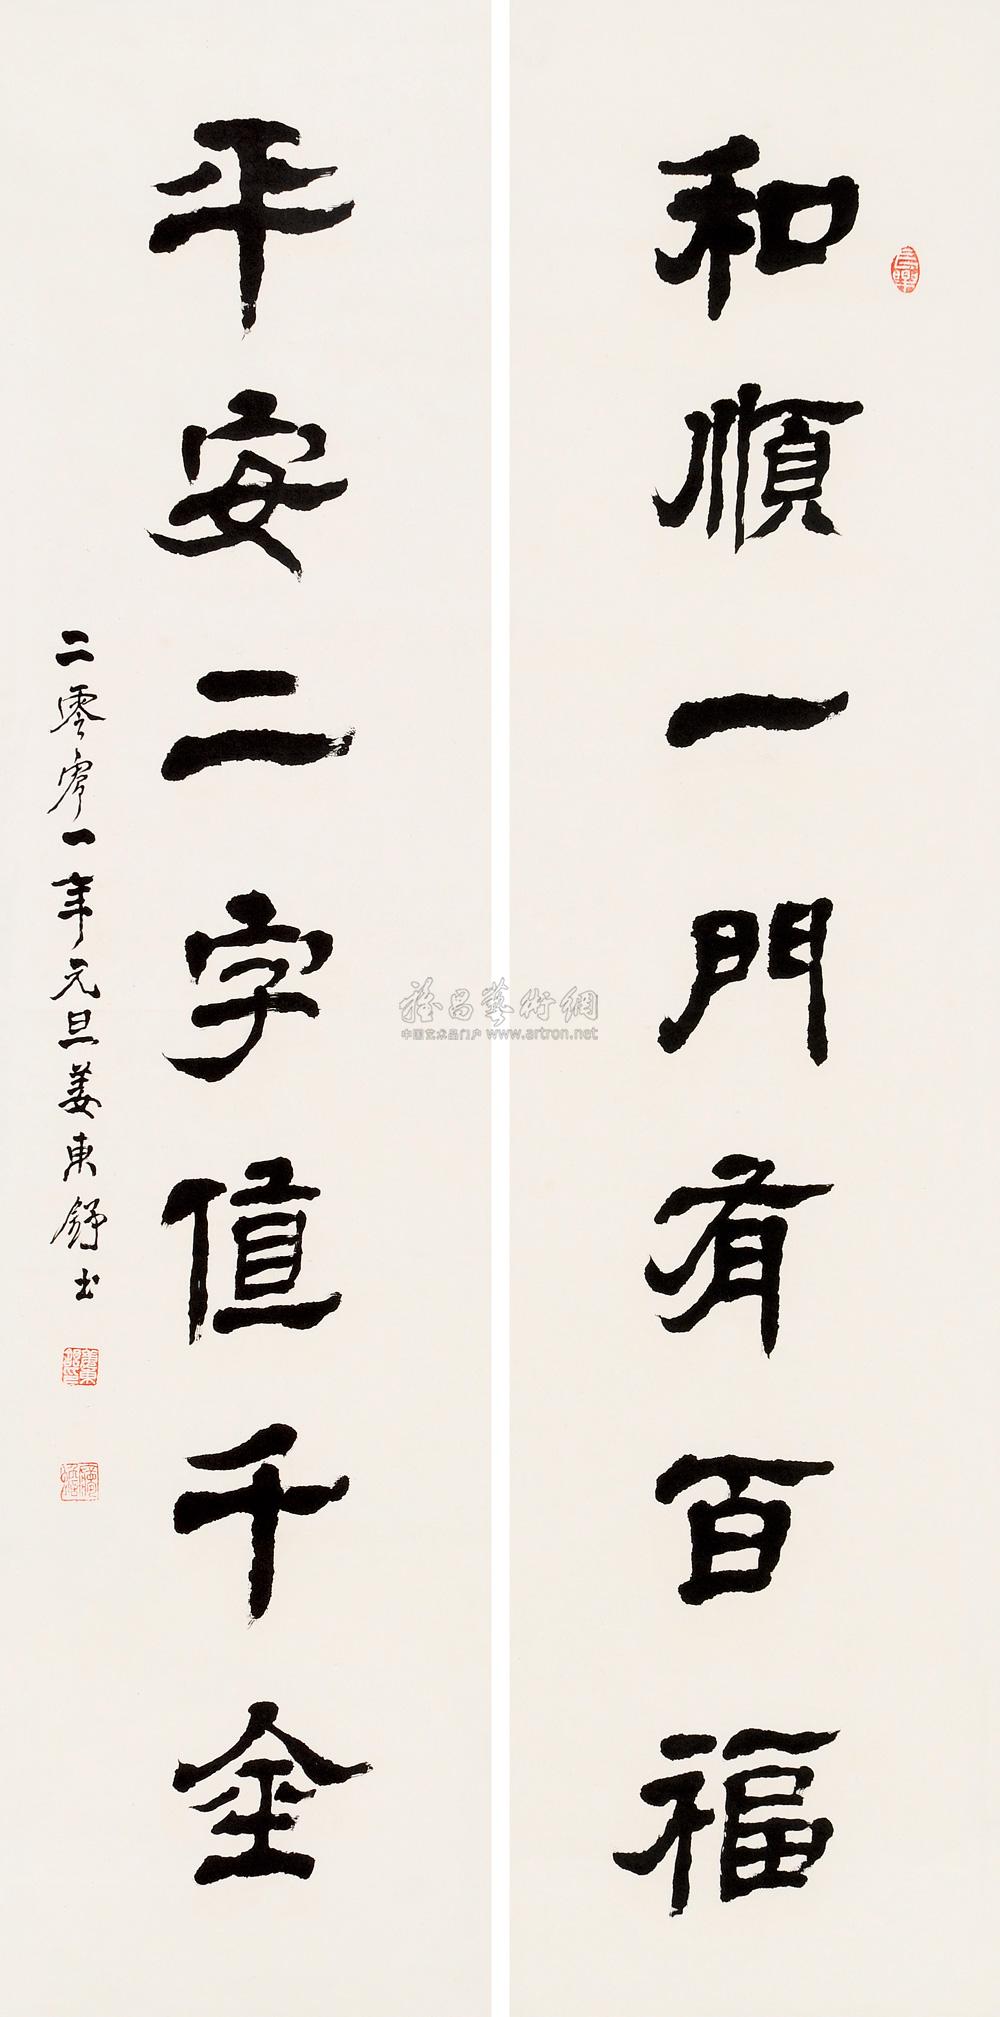 和順一門有百福
平安二字值千金
二零零一年元旦姜東舒書
雅昌藝術網
中国艺术品门户 www.artron.net